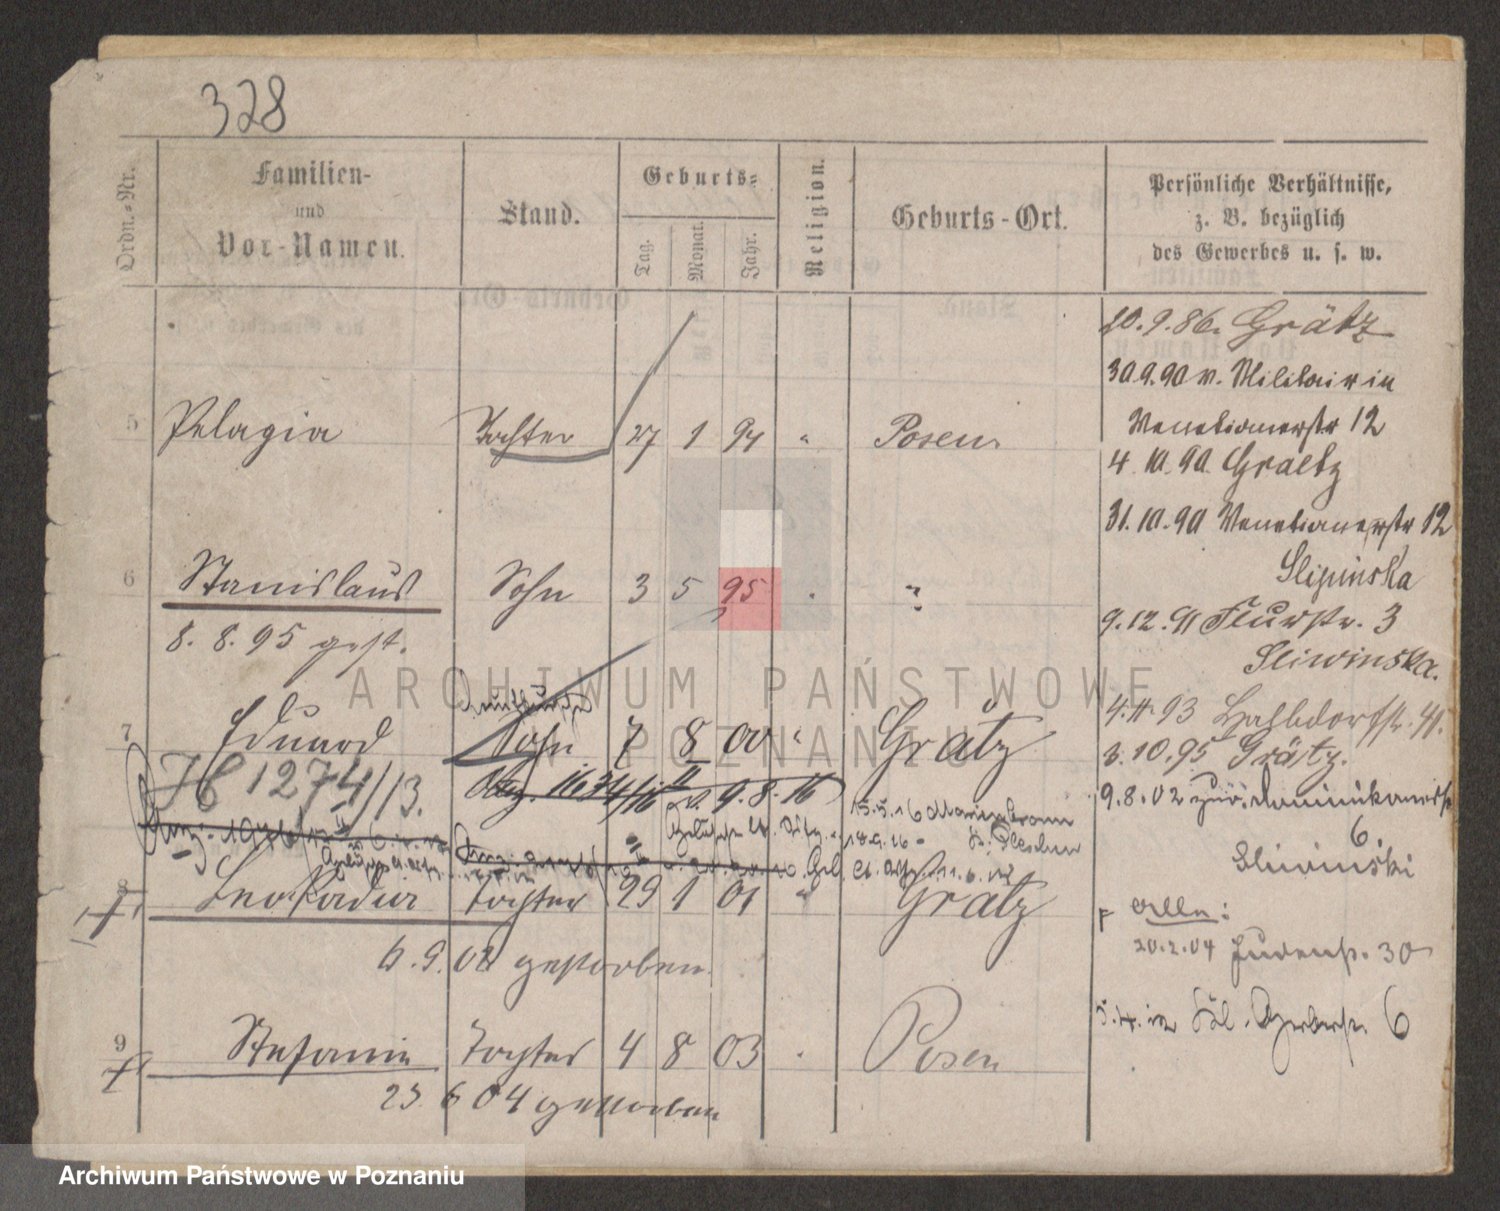 328
Ordn.-Nr.
Familien-
und
Vor-Namen.
Stand.
Geburts-
Tag.
Monat.
Jahr.
Religion.
Geburts-Ort.
Persönliche Verhältnisse,
z. B. bezüglich
des Gewerbes u. s. w.
10.9.86. Grätz
30.9.90 v. Militair in
Venetianerstr 12
5 Pelagia Tochter 27 1 94 " Posen
4.10.90 Graetz
31.10.90 Venetianerstr 12
Slipinska
6 Stanislaus Sohn 3 5 95 "
8. 8. 95 gest.
9.12.91 Flurstr. 3
Sliwinska.
4.4.93 Halbdorfstr.
3.10.95 Grätz.
7 Eduard Sohn 7 8 00 " Grätz
9.8.02 zur. Dominikanerstr
6.
Sliwinski
H 1274/13.
9.8.16
15.5.16
8 Leokadia Tochter 29 1 01 " Grätz
6.9.02 gestorben
Alle:
20.2.04 Judenstr. 30
9 Stefanie Tochter 4 8 03 Posen
23 6 04 gestorben
Gerberstr. 6
ARCHIWUM PAŃSTWOWE
W POZNANIU
Archiwum Państwowe w Poznaniu